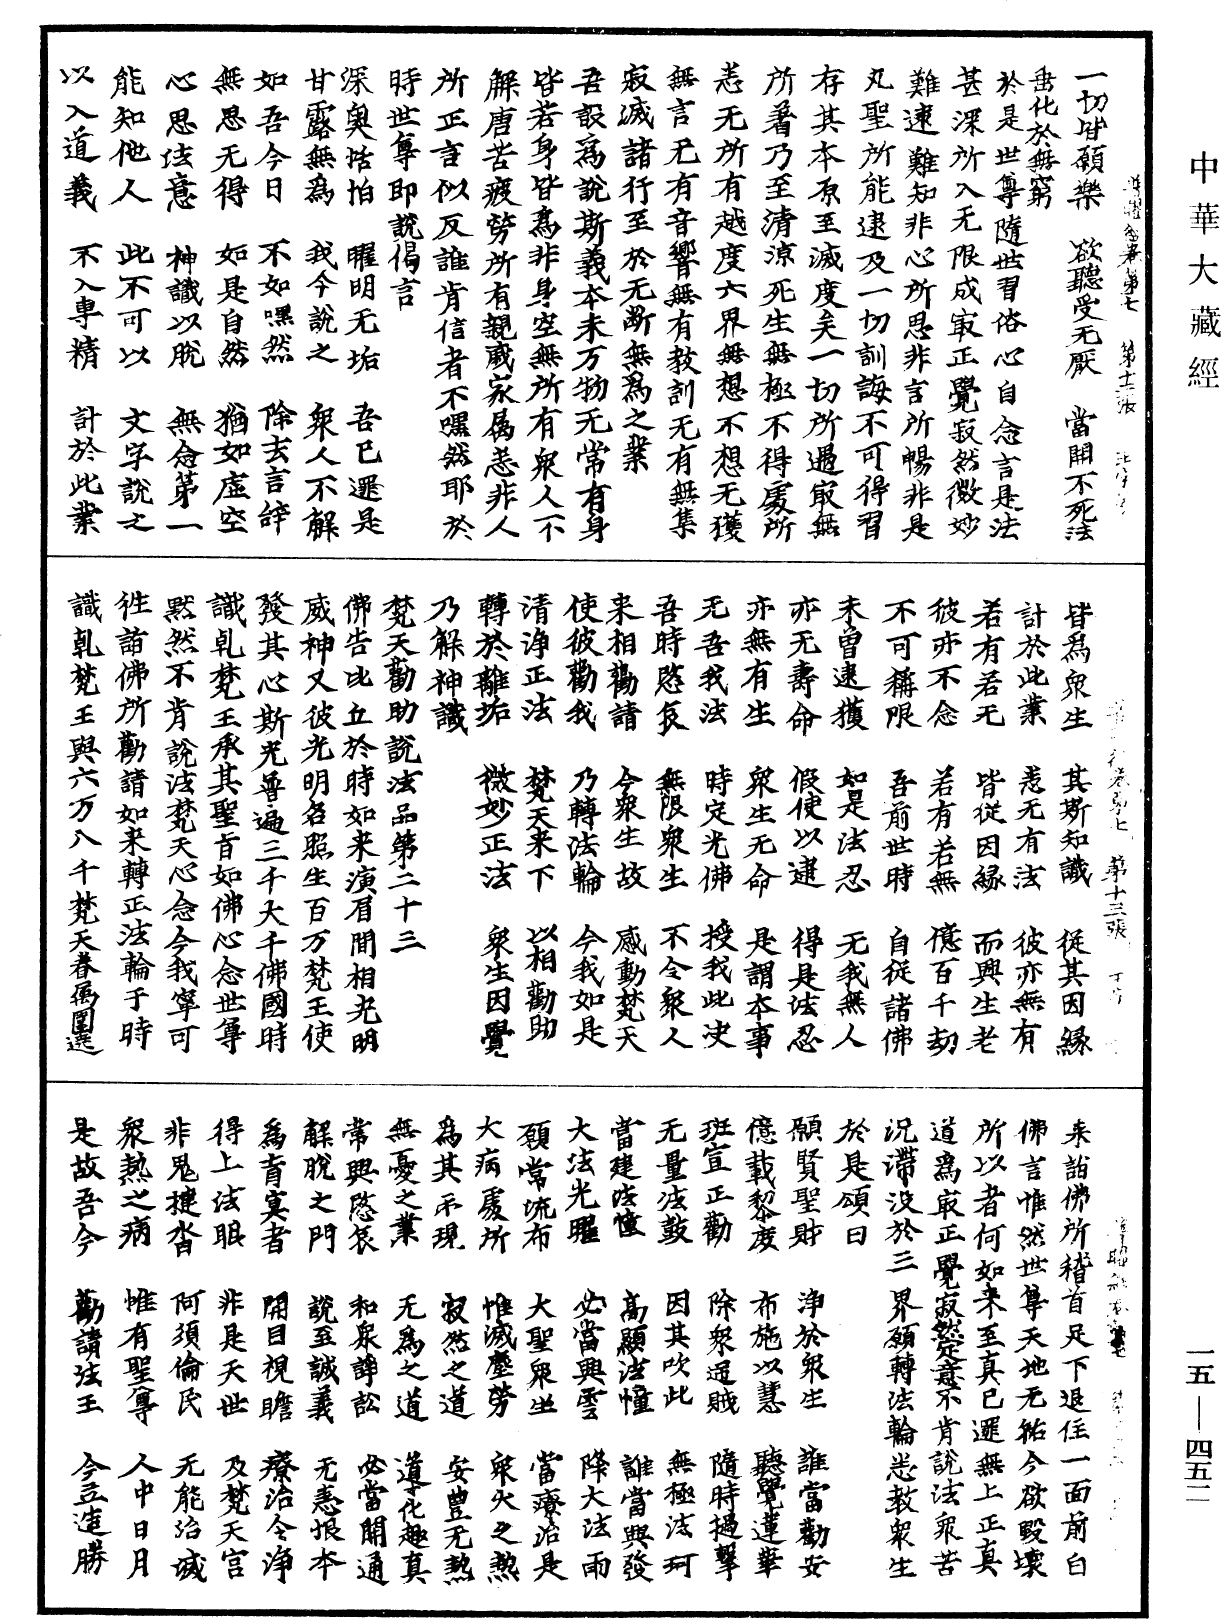 中華大藏經
一切皆願樂　欲聽受无厭　當開不死法
垂化於無窮
於是世尊隨世習俗心自念言是法
甚深所入无限成㝡正覺寂然微妙
難逮難知非心所思非言所暢非是
凡聖所能逮及一切訓誨不可得習
存其本原至滅度矣一切所過㝡無
所著乃至清涼死生無極不得處所
悉无所有越度六界無想不想无獲
無言无有音響無有教訓无有無集
寂滅諸行至於无斷無爲之業
吾設爲說斯義本末万物无常有身
皆若身皆爲非身空無所有衆人不
解唐苦疲勞所有親戚家属悉非人
所正言似反誰肯信者不嘿然耶於
時世尊即說偈言
深奧恬怕　曜明无垢　吾已逮是
甘露無爲　我今說之　衆人不解
如吾今日　不如嘿然　除去言辝
無思无得　如是自然　猶如虛空
心思法意　神識以脫　無念第一
能知他人　此不可以　文字說之
以入道義　不入專精　計於此業
第十二張
皆爲衆生　其斯知識　從其因緣
計於此業　悉无有法　彼亦無有
若有若无　皆從因緣　而興生老
彼亦不念　若有若無　億百千劫
不可稱限　吾前世時　自從諸佛
未曾逮獲　如是法忍　无我無人
亦无壽命　假使以逮　得是法忍
亦無有生　衆生无命　是謂本事
无吾我法　時定光佛　授我此决
吾時愍哀　無限衆生　不令衆人
来相勸請　今衆生故　感動梵天
使彼勸我　乃轉法輪　今我如是
清淨正法　梵天来下　以相勸助
轉於離垢　微妙正法　衆生因覺
乃解神識
梵天勸助說法品第二十三
佛告比丘於時如来演眉間相光明
威神又彼光明名照生百万梵王使
發其心斯光普遍三千大千佛國時
識乹梵王承其聖旨如佛心念世尊
黙然不肯說法梵天心念今我寧可
徃詣佛所勸請如来轉正法輪于時
識乹梵王與六万八千梵天眷属圍遶
第十三張
来詣佛所稽首足下退住一面前白
佛言惟然世尊天地无祐今欲毀壞
所以者何如来至真已逮無上正真
道爲㝡正覺寂然定意不肯說法衆苦
況滯没於三界願轉法輪悉教衆生
於是頌曰
願賢聖財　淨於衆生　誰當勸安
億載黎度　布施以慧　聽覺蓮華
班宣正勸　除衆逕賊　隨時撾擊
无量法鼓　因其吹此　無極法珂
當建法幢　高顯法幢　誰當興發
大法光曜　必當興雲　降大法雨
願常流布　大聖衆坐　當療治是
大病處所　惟滅塵勞　衆火之熱
爲其示現　寂然之道　安豊无熱
無憂之業　无爲之道　導化趣真
常興愍哀　和衆諍訟　必當開通
解脫之門　說至誠義　无恚恨本
爲盲㝠者　開目視瞻　療治令淨
得上法眼　非是天世　及梵天宮
非鬼揵沓　阿須倫民　无能治滅
衆熱之病　惟有聖尊　人中日月
是故吾今　勸請法王　今立造勝
一五—四五二